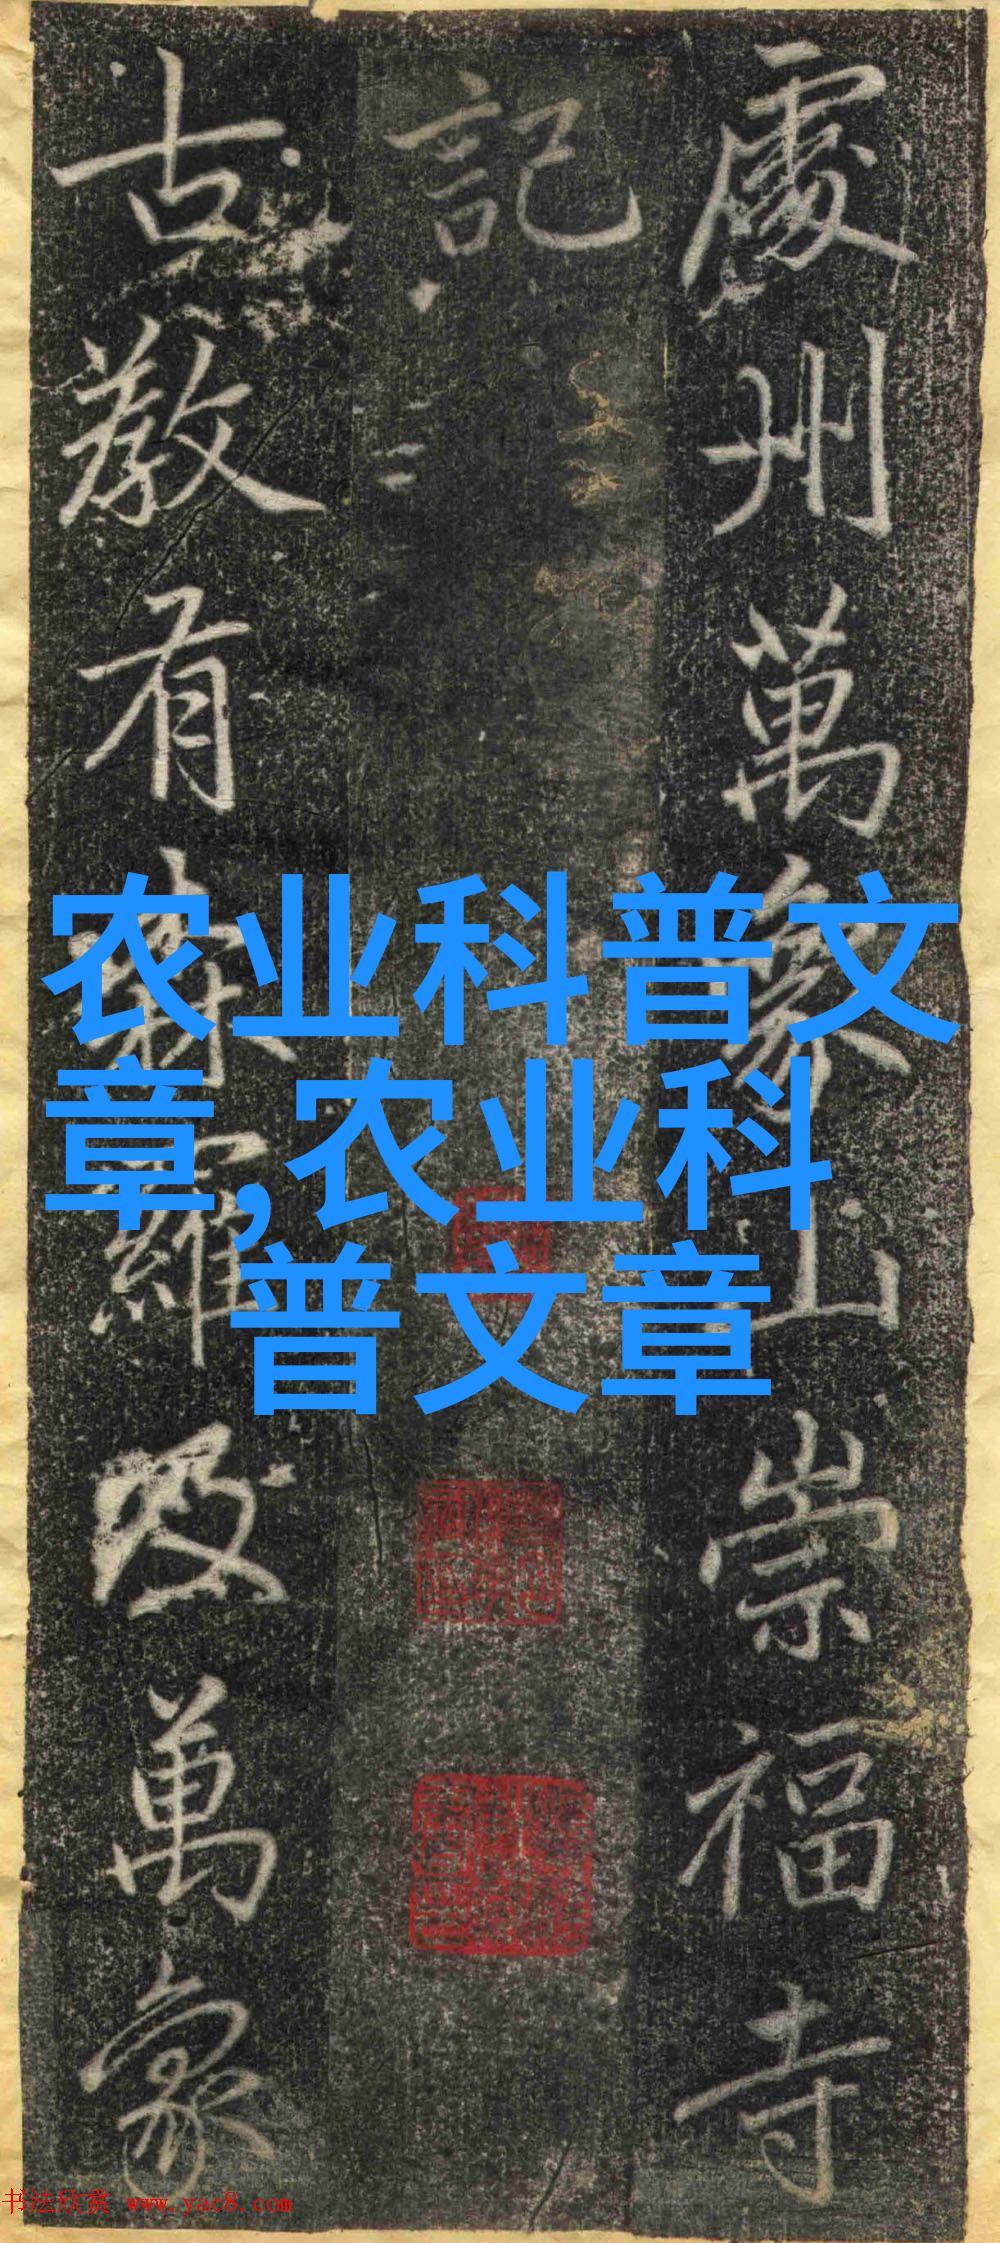 處州萬象山崇福寺
記
古教有森羅及萬象
农业科普文
章,农业科
普文章
书法欣赏 www.yac8.com